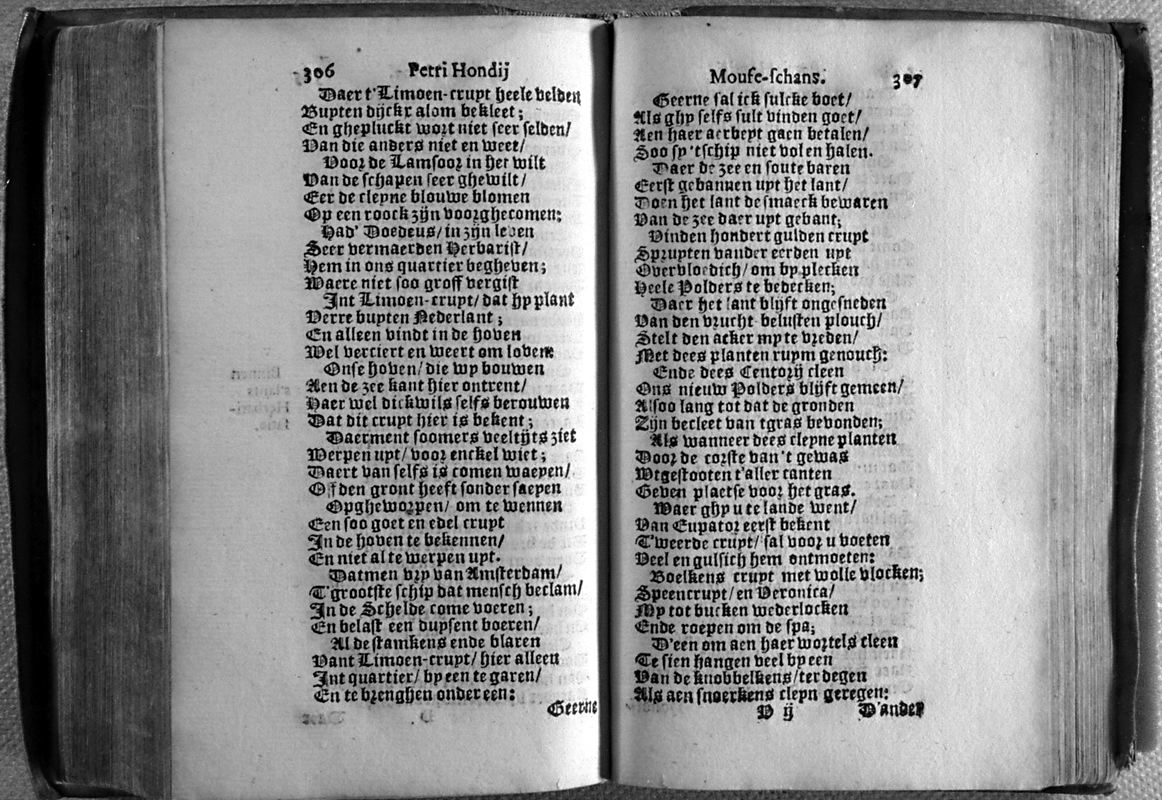 306 Petri Hondij
Daer t'Limoen-crupt heele velden
Buyten dijckx alom bekleet;
En ghepluckt wort niet seer selden/
Van die anders niet en weet/
Voor de Lamsoor in het wilt
Van de schapen seer ghewilt/
Eer de cleyne blouwe blomen
Op een roock zijn voorghecomen:
Had' Doedeus/ in zijn leven
Seer vermaerden Herbarist/
Hem in ons quartier begheven;
Waere niet soo groff vergist
Int Limoen-crupt/ dat hy plant
Verre buyten Nederlant;
En alleen vindt in de hoven
Wel verciert en weert om loven:
Onse hoven/ die wy bouwen
Aen de zee kant hier ontrent/
Haer wel dickwils selfs berouwen
Dat dit crupt hier is bekent;
Daerment soomers veeltijts ziet
Werpen upt/ voor enckel wiet;
Daert van selfs is comen waeyen/
Of den gront heeft sonder saeyen
Opgheworpen/ om te wennen
Een soo goet en edel crupt
In de hoven te bekennen/
En niet al te werpen upt.
Datmen vry van Amsterdam/
T'grootste schip dat mensch beclam/
In de Schelde come voeren;
En belast een duysent boeren/
Al de stamkens ende blaren
Vant Limoen-crupt/ hier alleen
Int quartier/ by een te garen/
En te brenghen onder een:
Geerne
Mouse-schans. 307
Geerne sal ick sulcke boet/
Als ghy selfs sult vinden goet/
Aen haer aerbeyt gaen betalen/
Soo sy 'tschip niet vol en halen.
Daer de zee en soute baren
Eerst gebannen upt het lant/
Doen het lant de smaeck bewaren
Van de zee daer upt gebant;
Vinden hondert gulden crupt
Spruyten vander eerden upt
Overvloedich/ om by plecken
Heele Polders te bedecken;
Daer het lant blijft ongesneden
Van den vrucht-belusten plouch/
Stelt den acker my te vreden/
Met dees planten ruym genouch:
Ende dees Centorij cleen
Ons nieuw Polders blijft gemeen/
Alsoo lang tot dat de gronden
Zijn becleet van tgras bevonden;
Als wanneer dees cleyne planten
Door de corste van 't gewas
Wtgestooten t'aller canten
Geven plaetse voor het gras.
Waer ghy u te lande went/
Van Eupator eerst bekent
T'weerde crupt/ sal voor u voeten
Veel en gulsich hem ontmoeten:
Boelkens crupt met wolle vlocken;
Speencrupt/ en Veronica/
My tot bucken wederlocken
Ende roepen om de spa;
D'een om aen haer wortels cleen
Te sien hangen veel by een
Van de knobbelkens/ ter degen
Als aen snoerkens cleyn geregen:
V ij D'ander